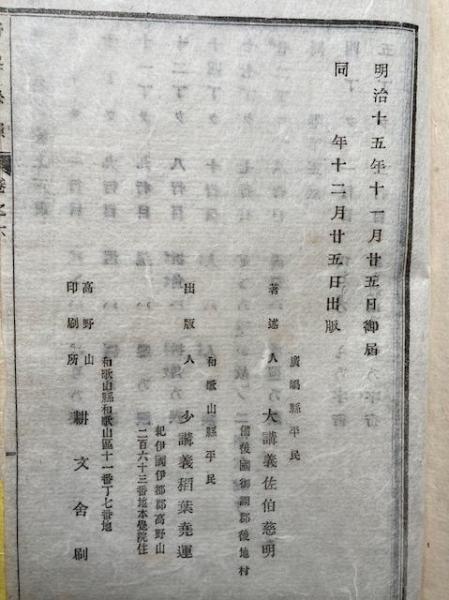 明治十五年十一月廿五日御届
同　年十二月廿五日出版
廣嶋縣平民
著述人　大講義佐伯慈明
備後國御調郡後地村
和歌山縣平民
出版人　少講義稻葉堯運
紀伊國伊都郡高野山
二百六十三番地本覺院住
和歌山縣和歌山區十一番丁七番地
高野山
印刷所　耕文舍刷
卷之六